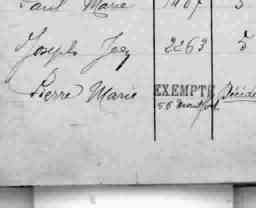 Paul Marie 1407 5
Joseph Joey 2263 5
Pierre Marie EXEMPTÉ Décidé
56